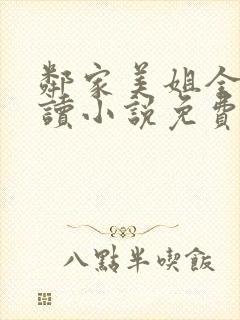 鄰家美姐全
讀小說免費
八點半喫飯